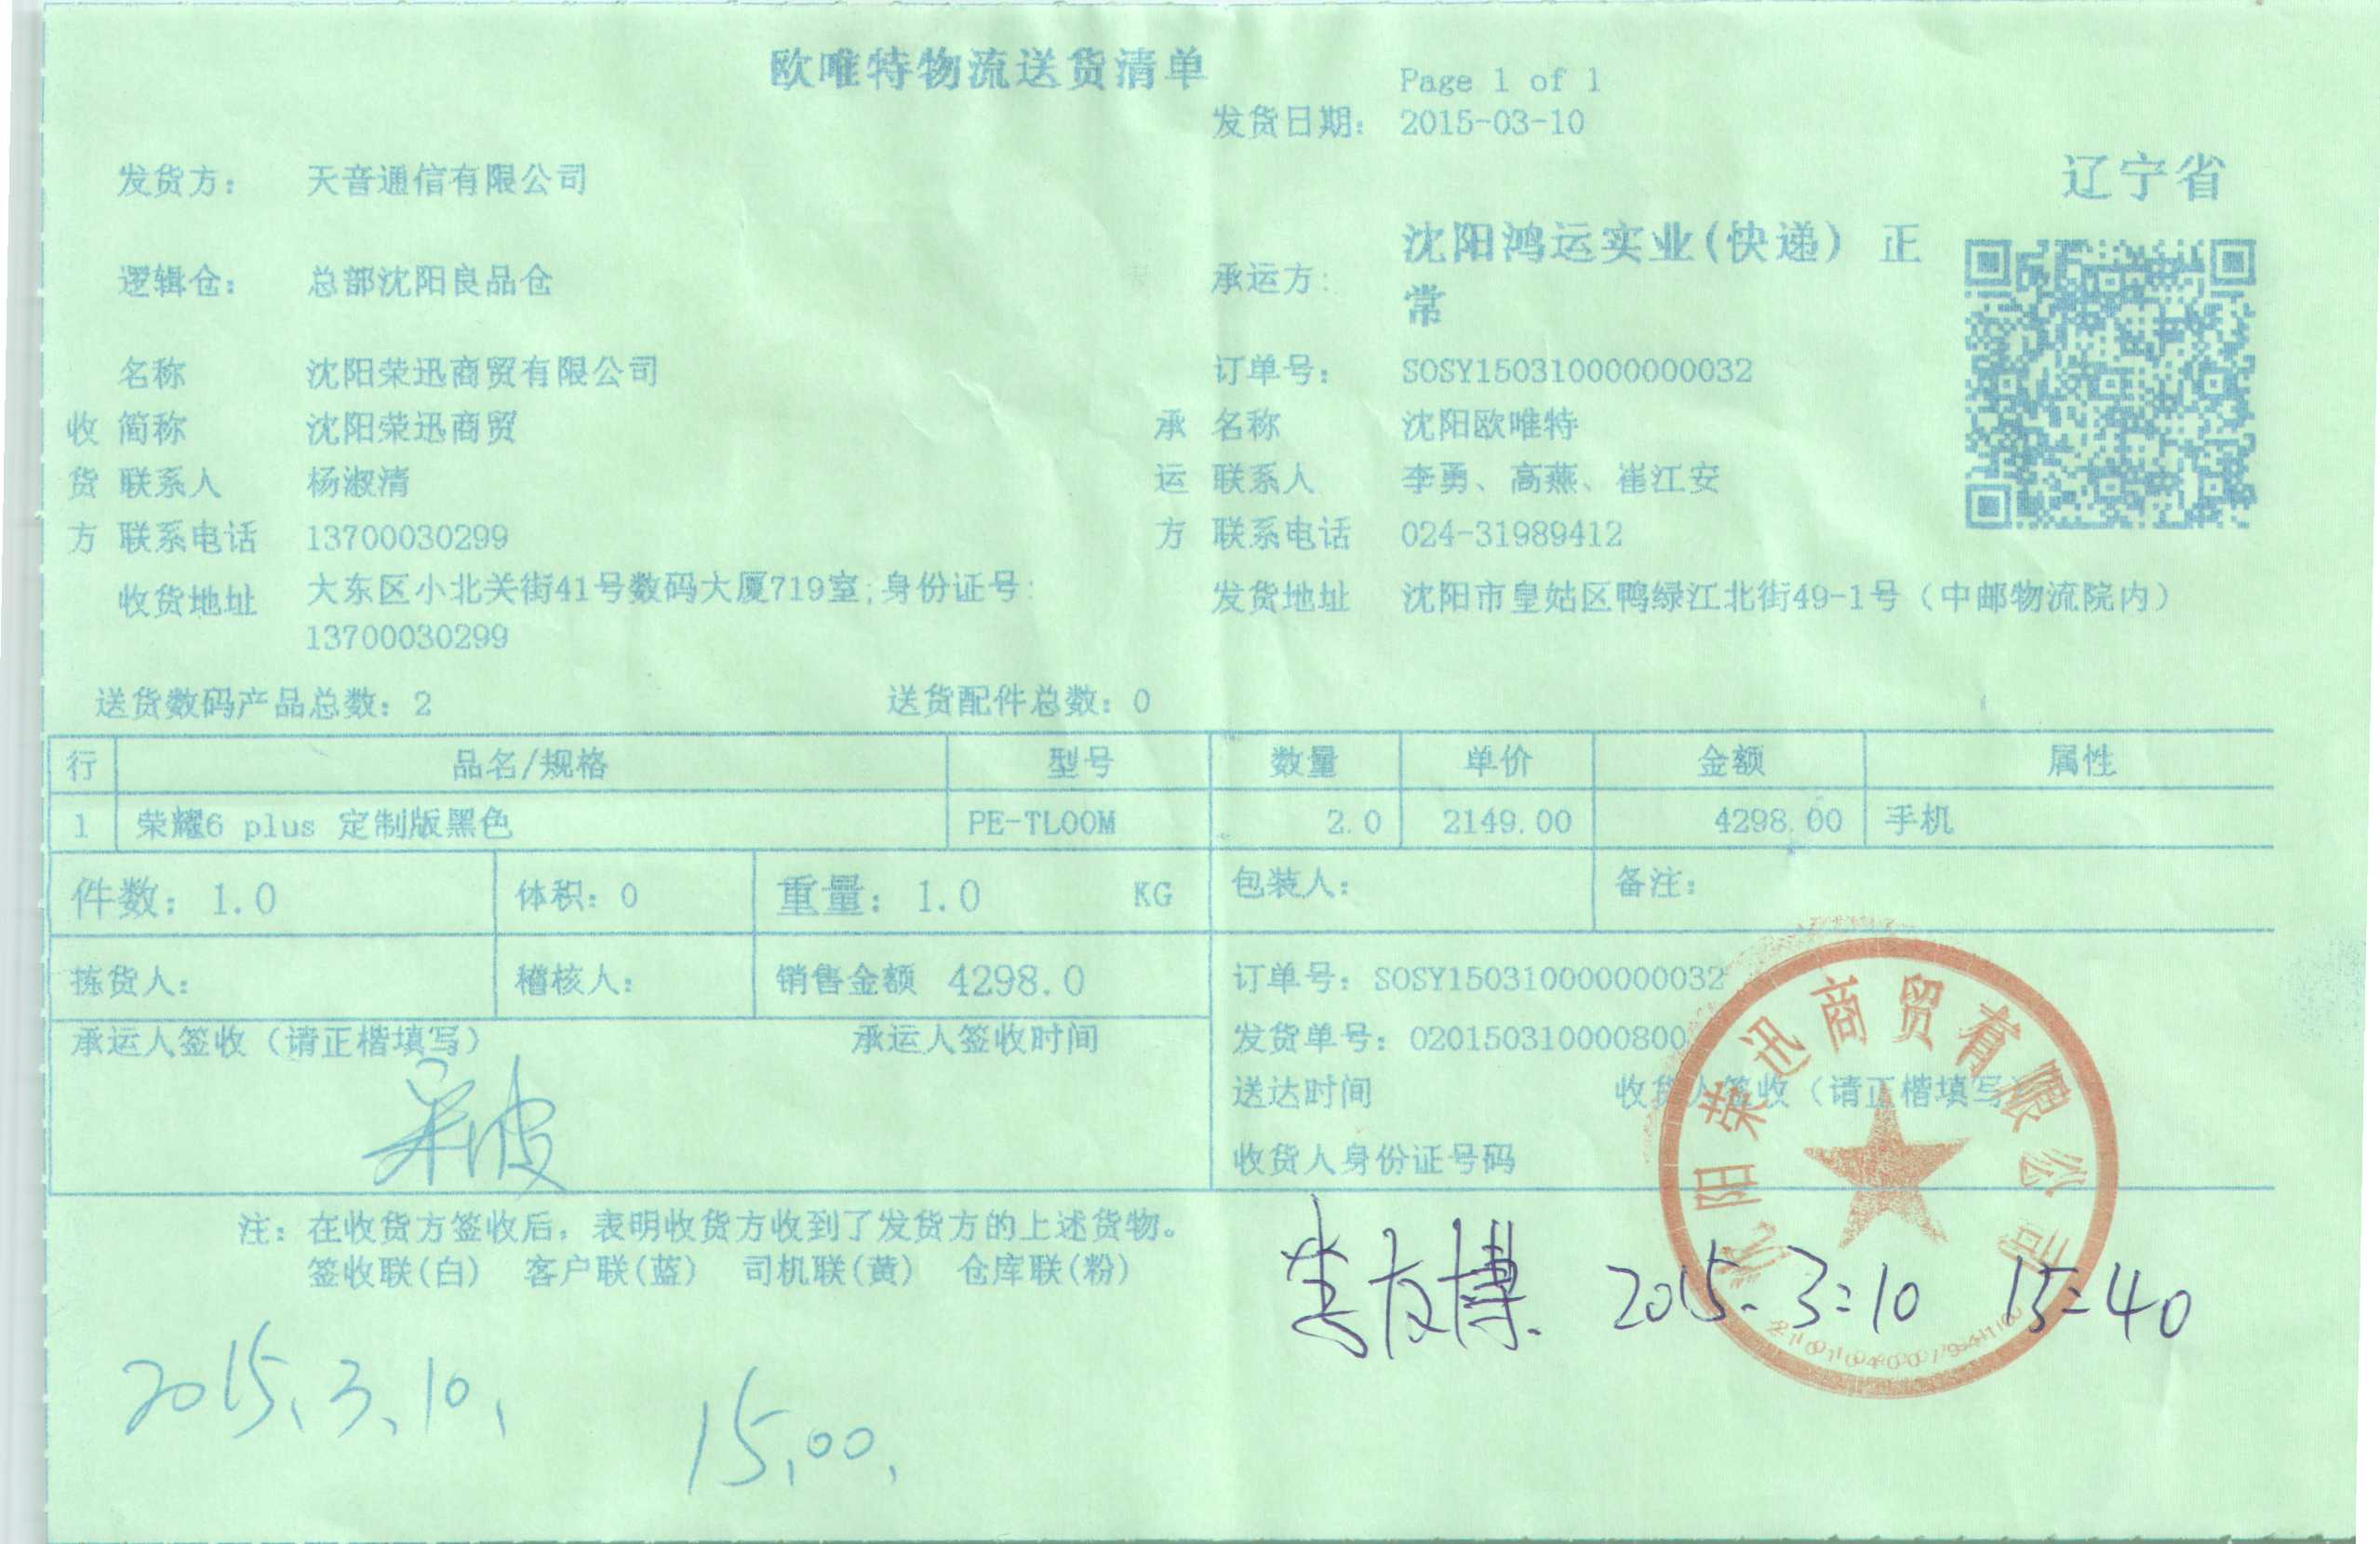 欧唯特物流送货清单
Page 1 of 1
发货日期: 2015-03-10
辽宁省
发货方: 天音通信有限公司
逻辑仓: 总部沈阳良品仓
承运方: 沈阳鸿运实业(快递) 正
常
名称 沈阳荣迅商贸有限公司 订单号: SOSY150310000000032
收 简称 沈阳荣迅商贸 承 名称 沈阳欧唯特
货 联系人 杨淑清 运 联系人 李勇、高燕、崔江安
方 联系电话 13700030299 方 联系电话 024-31989412
收货地址 大东区小北关街41号数码大厦719室;身份证号:
13700030299
发货地址 沈阳市皇姑区鸭绿江北街49-1号(中邮物流院内)
送货数码产品总数: 2 送货配件总数: 0
行 品名/规格 型号 数量 单价 金额 属性
1 荣耀6 plus 定制版黑色 PE-TL00M 2.0 2149.00 4298.00 手机
件数: 1.0 体积: 0 重量: 1.0 KG 包装人: 备注:
拣货人: 稽核人: 销售金额 4298.0 订单号: SOSY150310000000032
承运人签收(请正楷填写) 承运人签收时间 发货单号: 020150310000800
送达时间 收货人签收(请正楷填写)
收货人身份证号码
吴波
沈阳荣迅商贸有限公司
注: 在收货方签收后, 表明收货方收到了发货方的上述货物。
签收联(白) 客户联(蓝) 司机联(黄) 仓库联(粉)
2015.3.10 15:40
2015、3、10、 15,00,